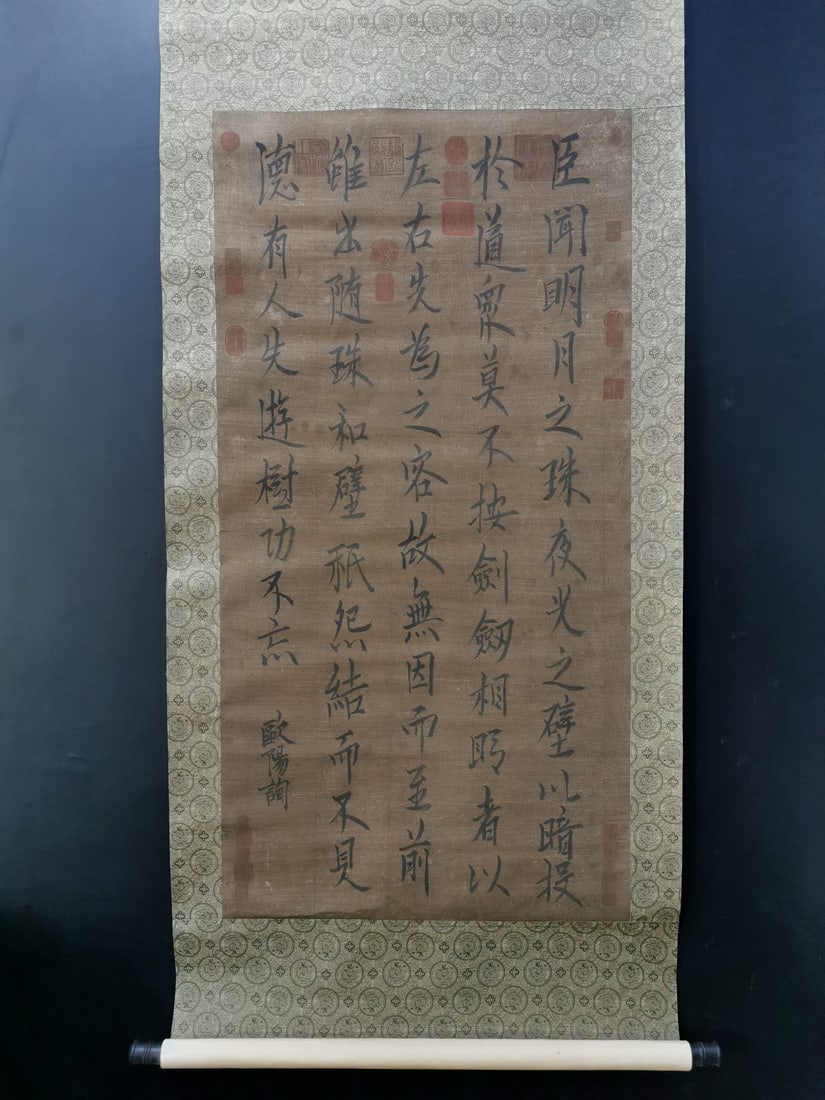 臣聞明月之珠夜光之璧以暗投
於道衆莫不按劍劒相眄者以
左右先為之容故無因而至前
雖出随珠和璧秖怨結而不見
徳有人先遊樹功不忘
歐陽詢